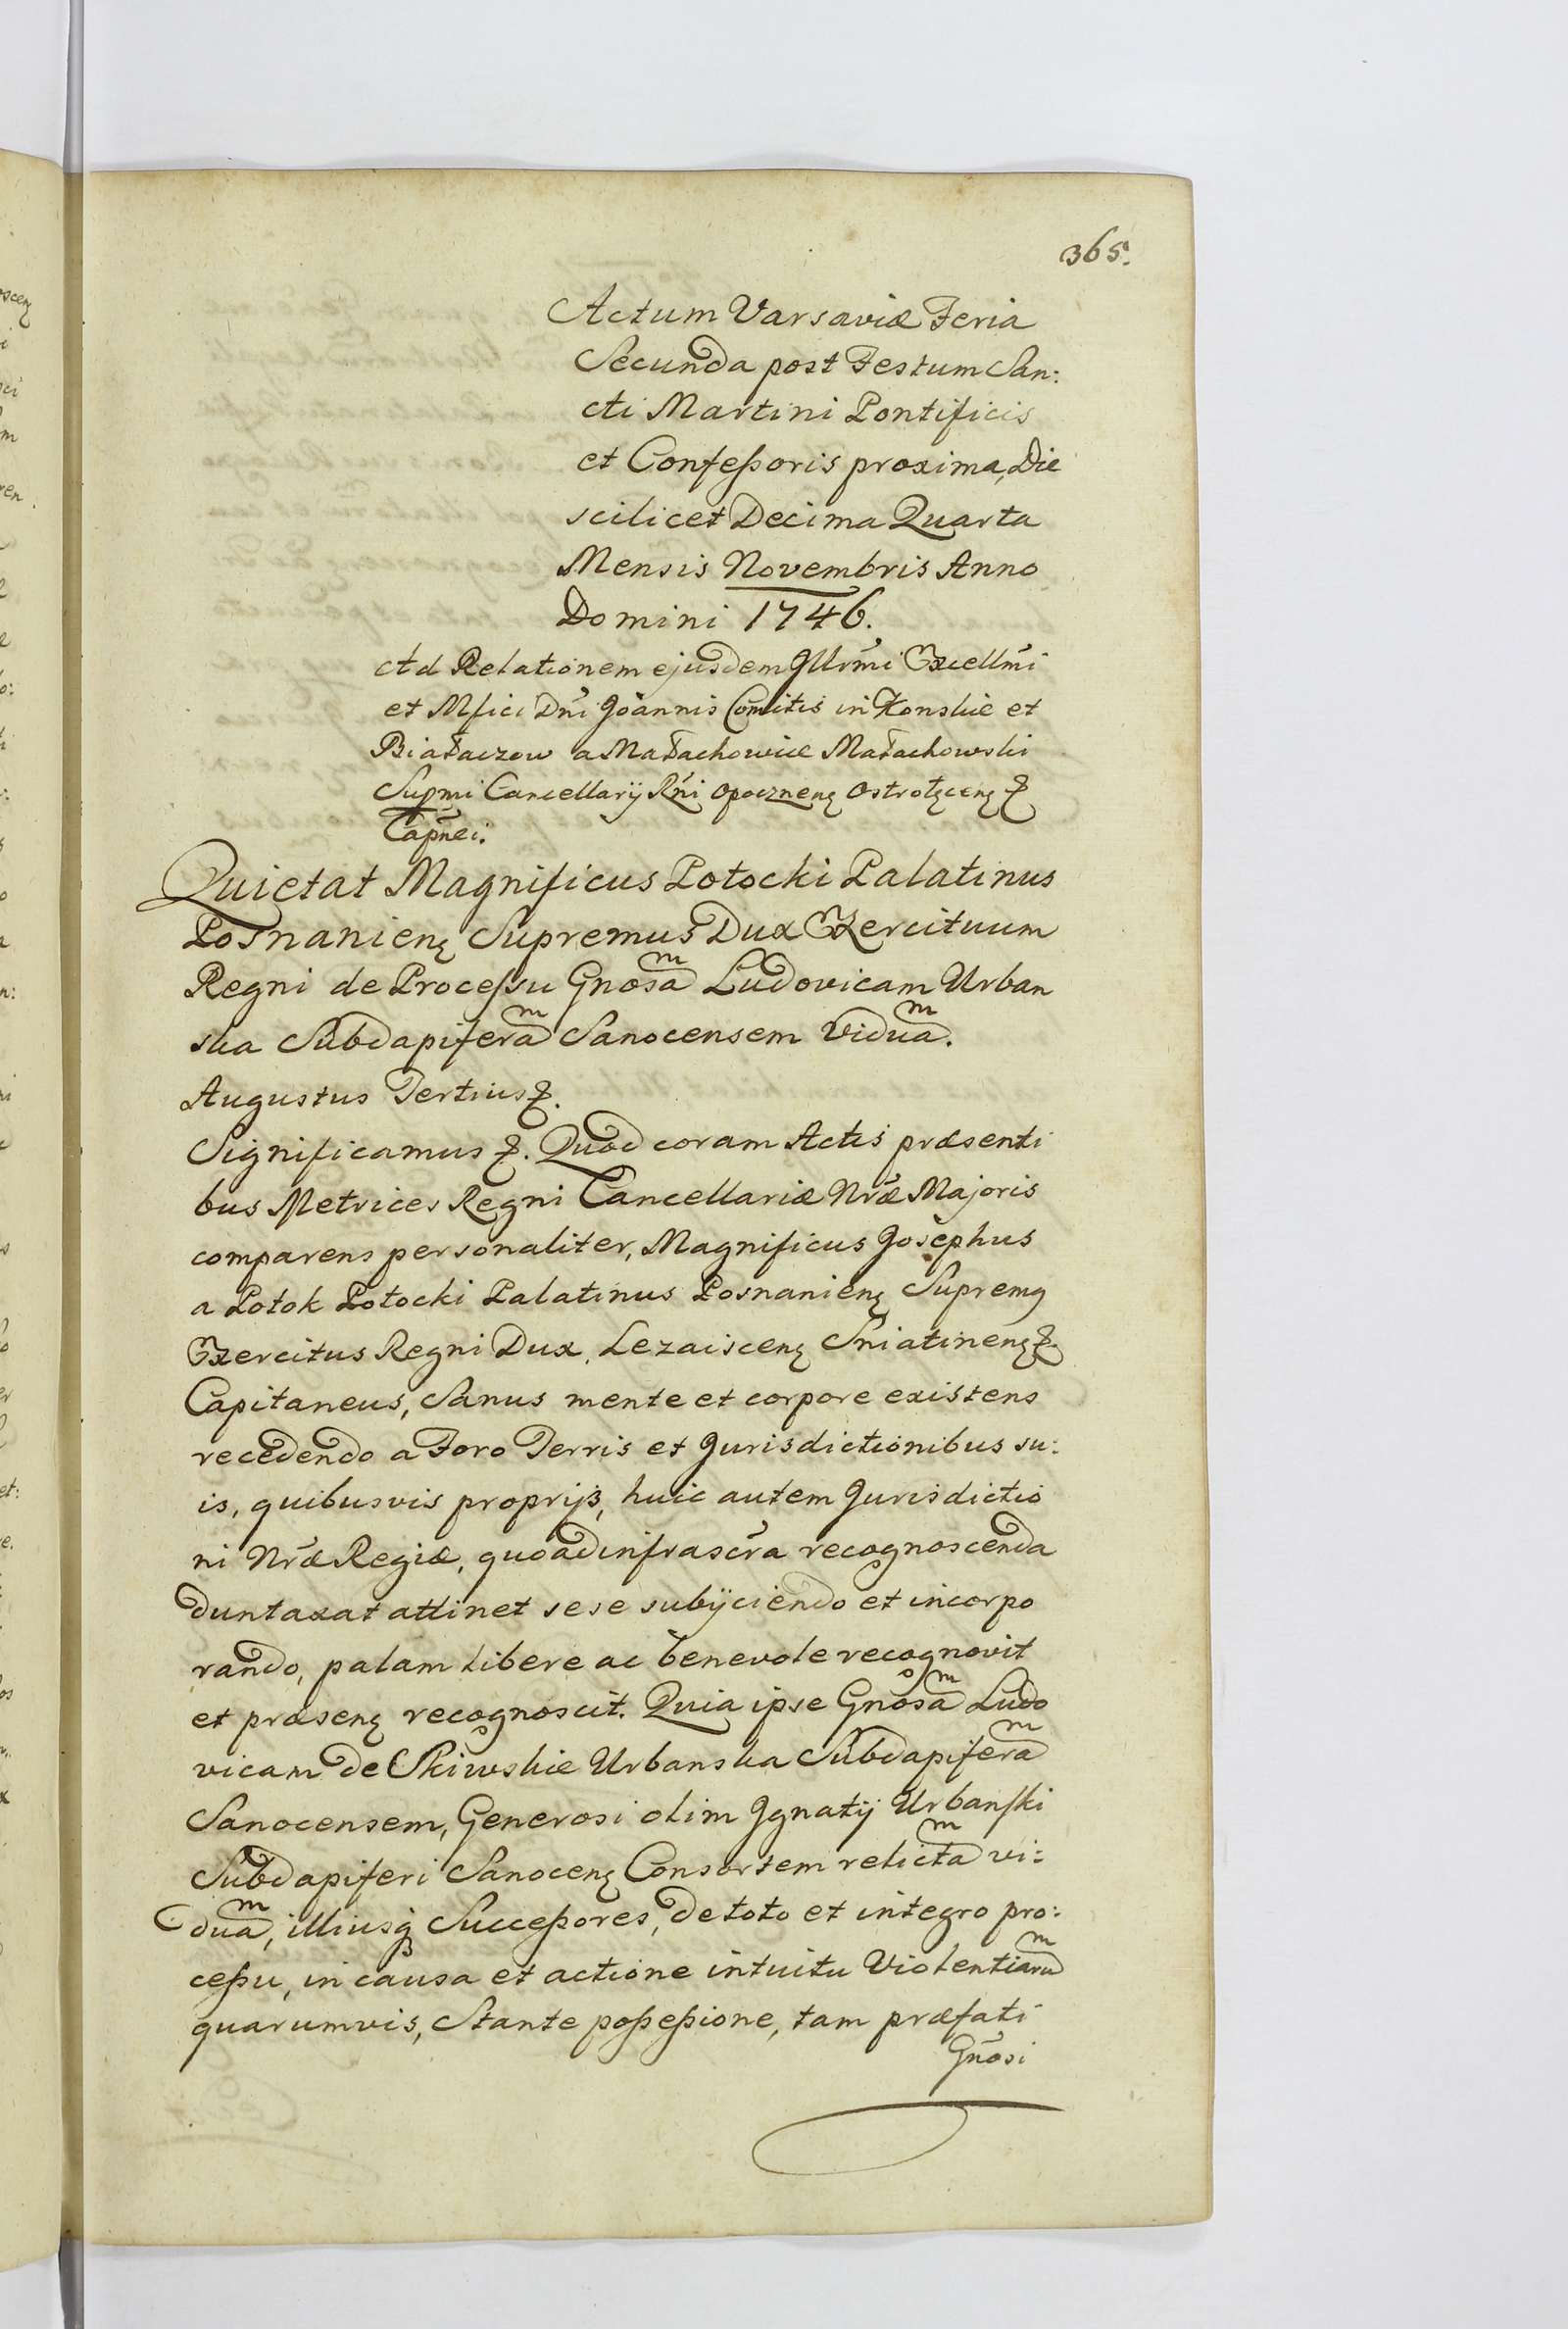 365.
Actum Varsaviæ Feria
Secunda post Festum San:
cti Martini Pontificis
et Confeßoris proxima, Die
scilicet Decima Quarta
Mensis Novembris Anno
Domini 1746.
Ad Relationem ejusdem Jllrmi Excellmi
et Mfici Dni Joannis Comitis in Konskie et
Białaczow a Małachowice Małachowski
Supmi Cancellarij Rni Opocznenę Ostrołęcenę &
Capnei.
Quietat Magnificus Potocki Palatinus
Posnanienę Supremus Dux Exercituum
Regni de Proceßu Gnosam Ludovicam Urban
ska Subdapiferam Sanocensem Viduam.
Augustus Tertius &.
Significamus &. Quod coram Actis præsenti
bus Metrices Regni Cancellariæ Nræ Majoris
comparens personaliter, Magnificus Josephus
a Potok Potocki Palatinus Posnanienę Supremꝰ
Exercitus Regni Dux, Lezaiscenę Sniatinenę &.
Capitaneus, Sanus mente et corpore existens
recedendo a Foro Terris et Jurisdictionibus su:
is, quibusvis proprijs, huic autem Jurisdictio
ni Nræ Regiæ, quoad infrascra recognoscenda
duntaxat attinet sese subijciendo et incorpo
rando, palam libere ac benevole recognovit
et præsenę recognoscit. Quia ipse Gnosam Ludo
vicam de Skiwskie Urbanska Subdapiferam
Sanocensem, Generosi olim Jgnatij Urbanski
Subdapiferi Sanocenę Consortem relictam vi:
duam, illiusq Succeßores, de toto et integro pro:
ceßu, in causa et actione intuitu Violentiarum
quarumvis, Stante poßeßione, tam præfati
Gnosi